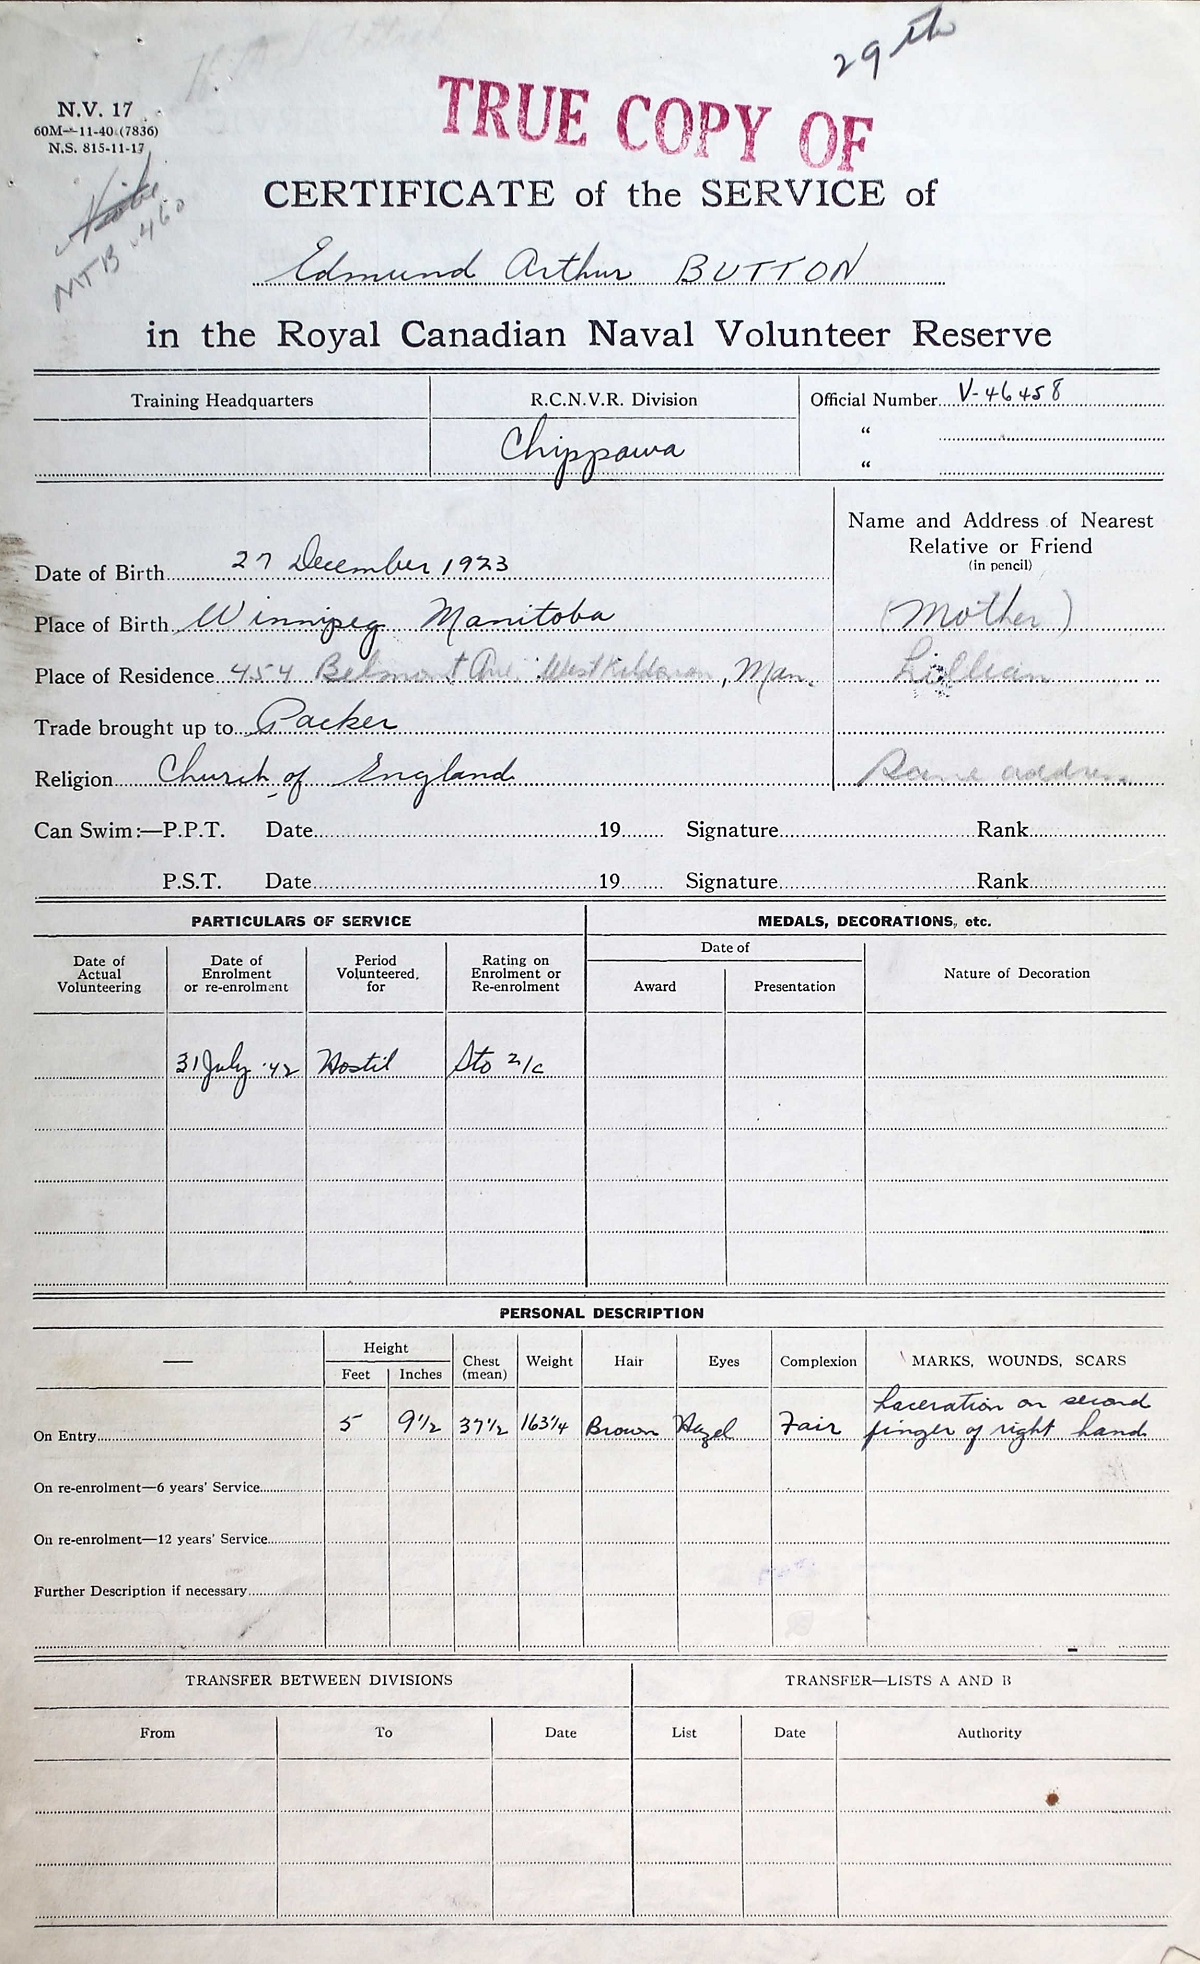 29th
N.V. 17
60M—11-40 (7836)
N.S. 815-11-17
MTB 460
TRUE COPY OF
CERTIFICATE of the SERVICE of
Edmund Arthur BUTTON
in the Royal Canadian Naval Volunteer Reserve
Training Headquarters R.C.N.V.R. Division Official Number V-46458
Chippawa “
“
Name and Address of Nearest
Relative or Friend
(in pencil)
Date of Birth 27 December 1923
Place of Birth Winnipeg Manitoba (Mother)
Place of Residence 454 Belmont Ave. West Kildonan, Man. Lillian
Trade brought up to Packer
Religion Church of England Same address
Can Swim:—P.P.T. Date 19 Signature Rank
P.S.T. Date 19 Signature Rank
PARTICULARS OF SERVICE MEDALS, DECORATIONS, etc.
Date of Actual Volunteering Date of Enrolment or re-enrolment Period Volunteered for Rating on Enrolment or Re-enrolment Date of Award Presentation Nature of Decoration
31 July '42 Hostil Sto 2/c
PERSONAL DESCRIPTION
— Height Feet Inches Chest (mean) Weight Hair Eyes Complexion MARKS, WOUNDS, SCARS
Laceration on second
On Entry 5 9½ 37½ 163¼ Brown Hazel Fair finger of right hand
On re-enrolment—6 years' Service
On re-enrolment—12 years' Service
Further Description if necessary
TRANSFER BETWEEN DIVISIONS TRANSFER—LISTS A AND B
From To Date List Date Authority